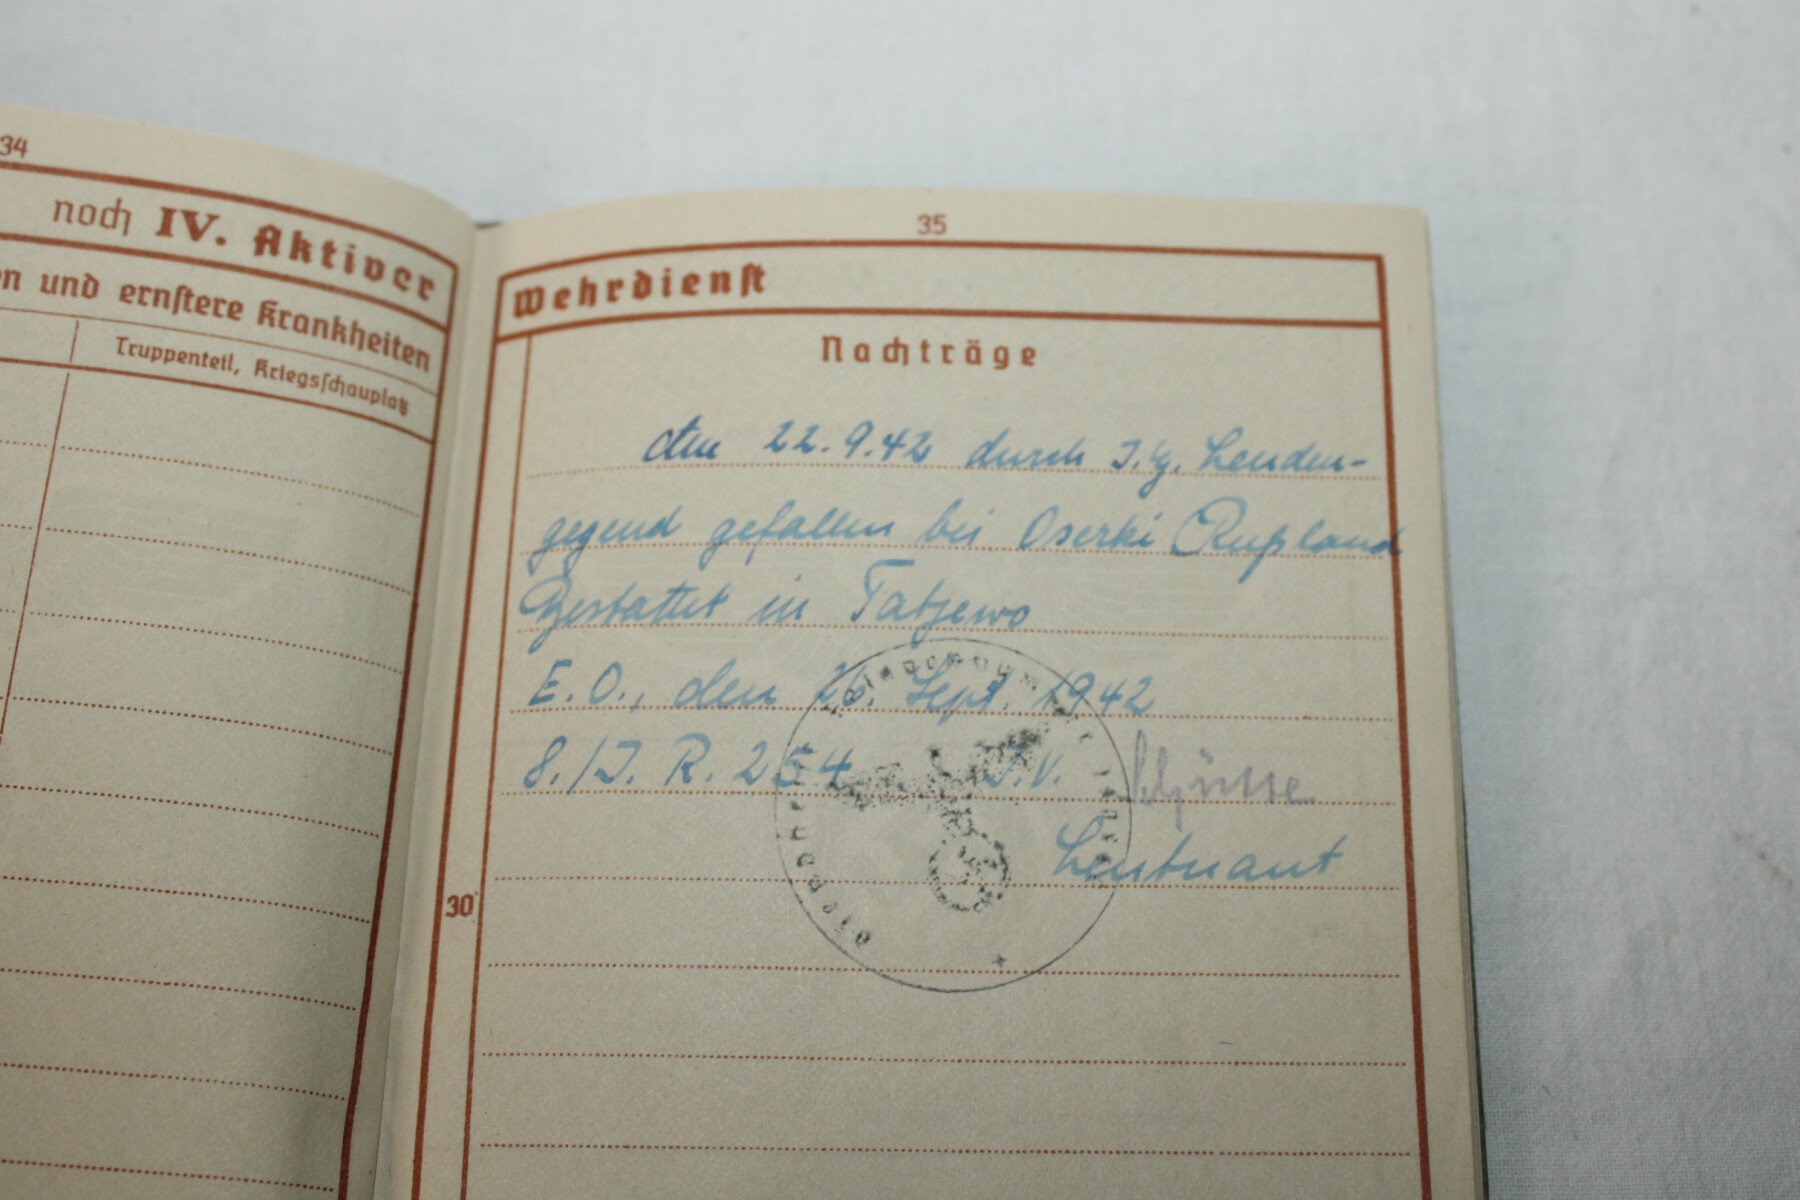 34
noch IV. Aktiver
en und ernstere Krankheiten
Truppenteil, Kriegsschauplatz
35
Wehrdienst
Nachträge
Am 22.9.42 durch I.G. Lenden-
gegend gefallen bei Oserki Rußland
Bestattet in Tatjewo
E.O., den 26. Sept. 1942
8./I. R. 254 I.V.
Leutnant
Dienststelle
30